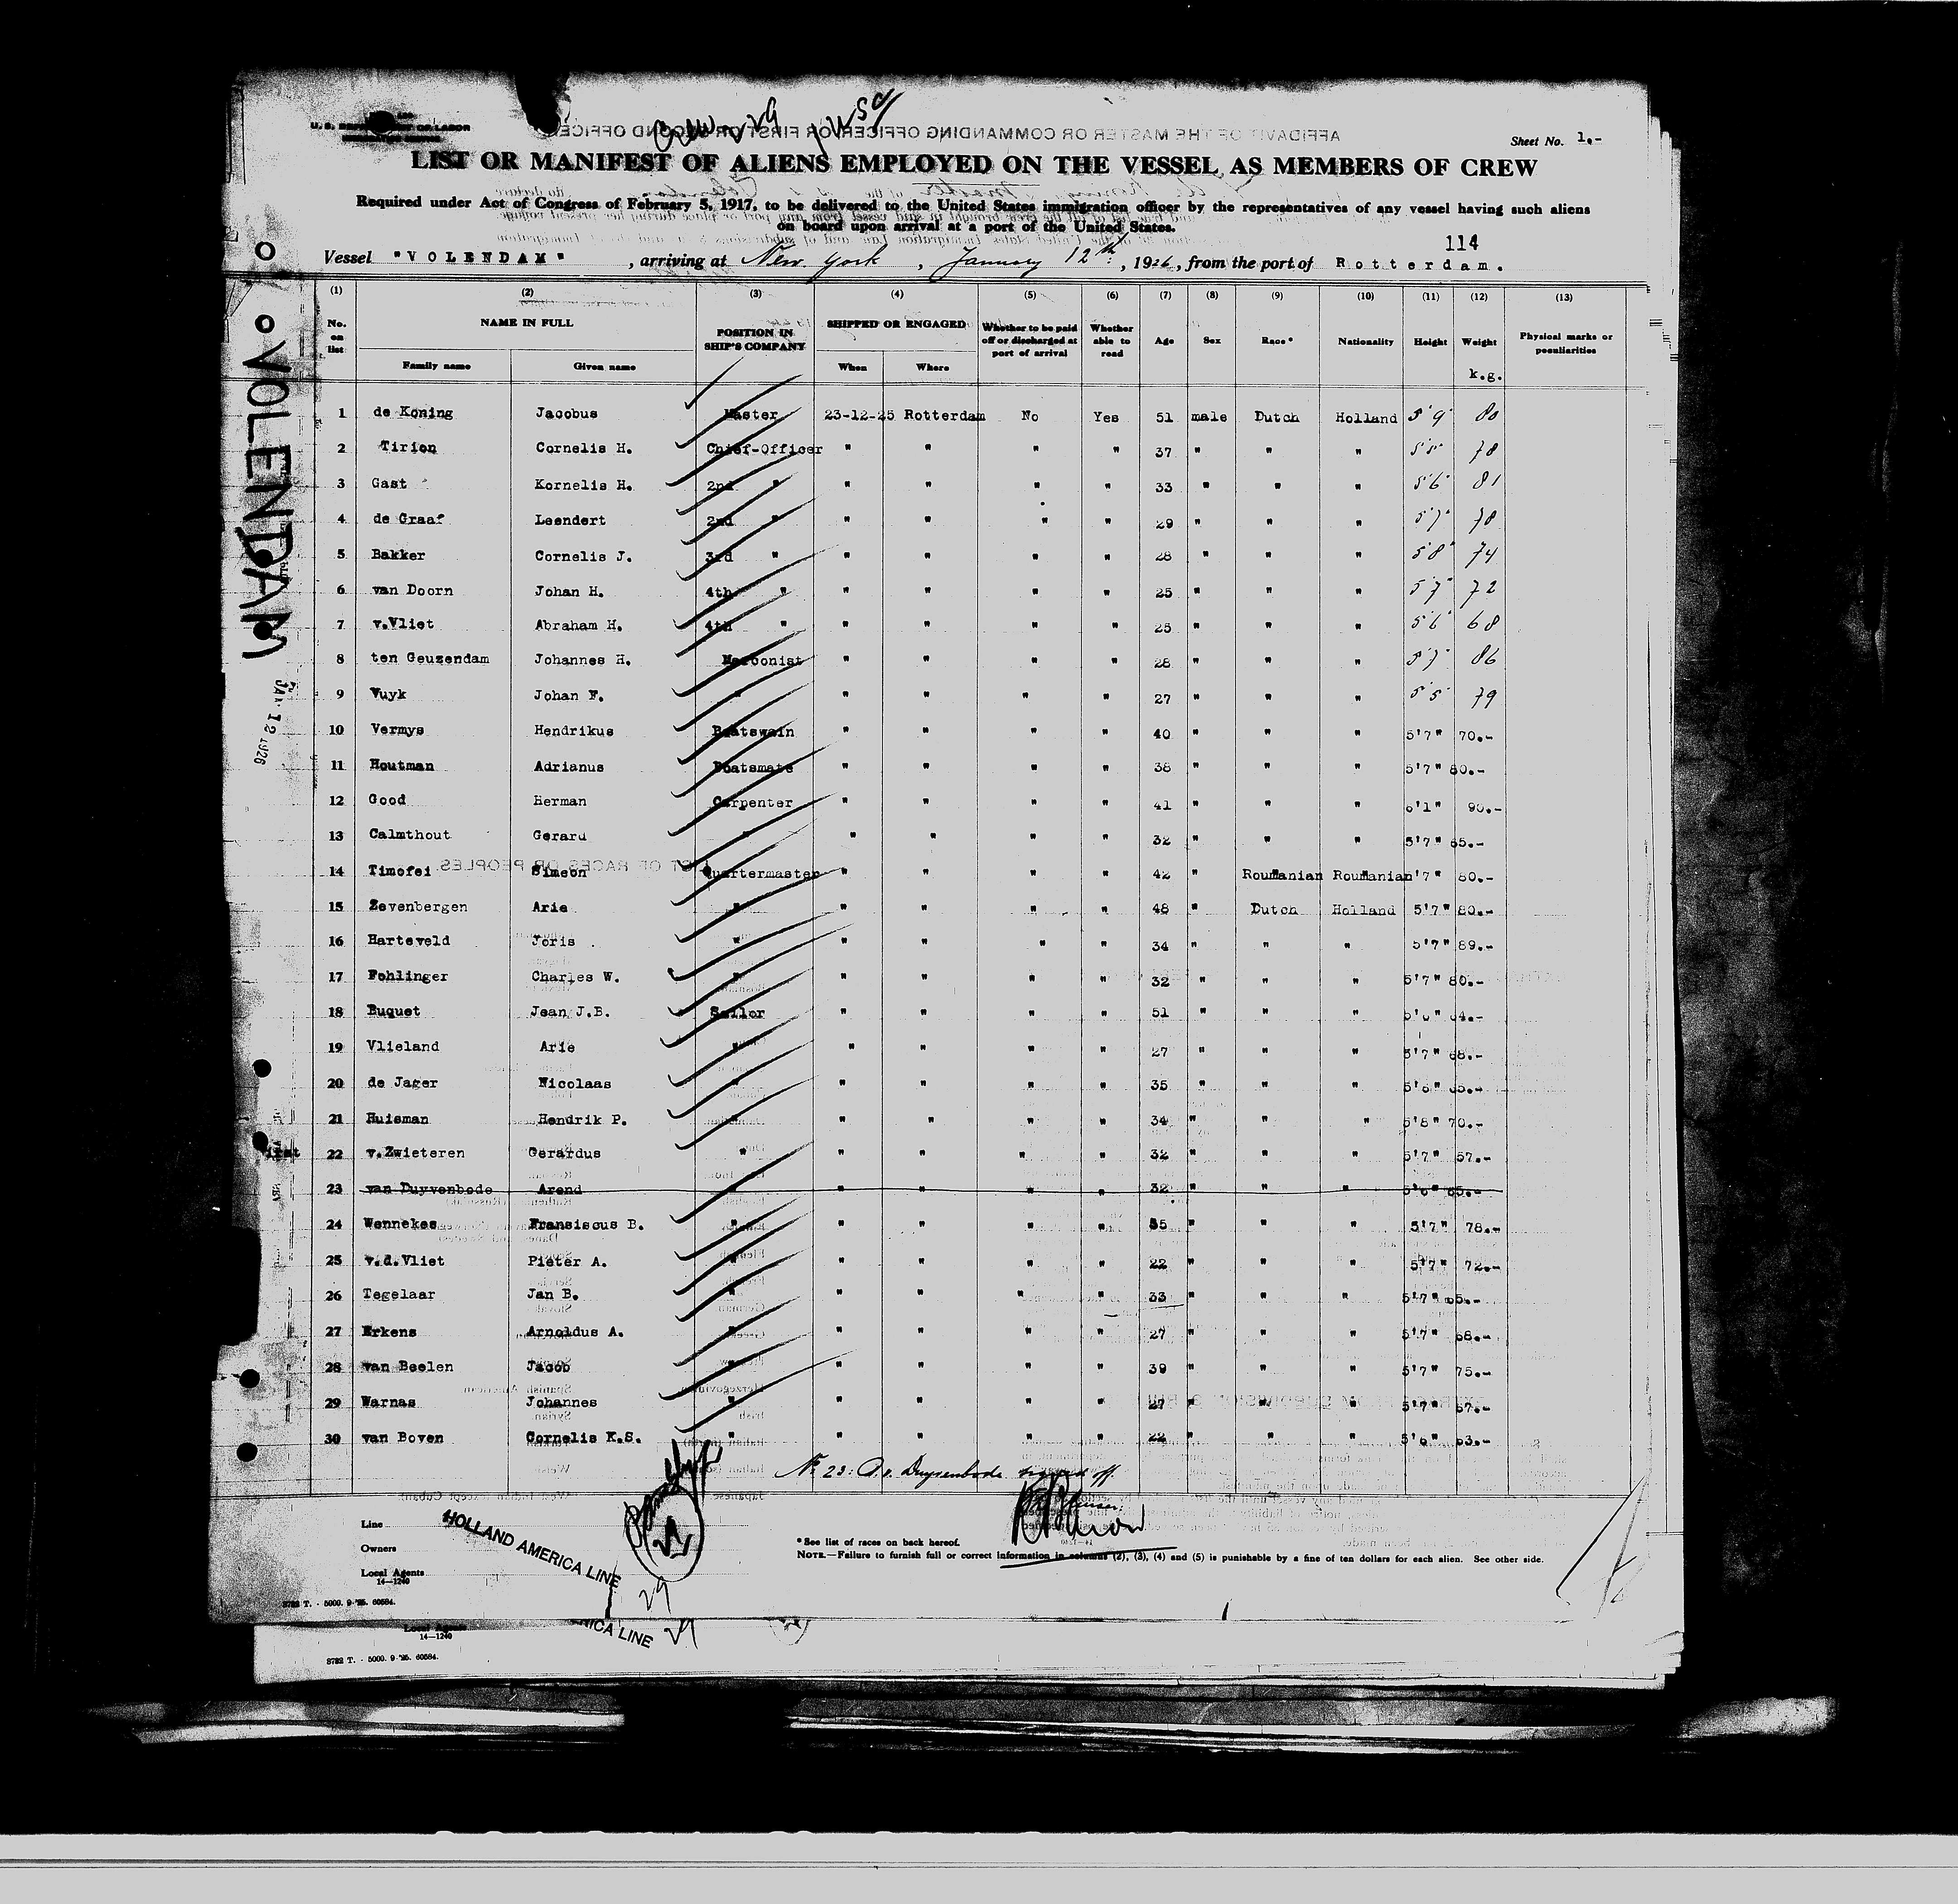 Crew 29 1 USC
U. S. DEPARTMENT OF LABOR
Sheet No. 1.-
LIST OR MANIFEST OF ALIENS EMPLOYED ON THE VESSEL AS MEMBERS OF CREW
Required under Act of Congress of February 5, 1917, to be delivered to the United States immigration officer by the representatives of any vessel having such aliens
on board upon arrival at a port of the United States.
114
Vessel "VOLENDAM" , arriving at New York , January 12th , 1926 , from the port of Rotterdam.
(1) (2) (3) (4) (5) (6) (7) (8) (9) (10) (11) (12) (13)
No. on list NAME IN FULL POSITION IN SHIP'S COMPANY SHIPPED OR ENGAGED Whether to be paid off or discharged at port of arrival Whether able to read Age Sex Race* Nationality Height Weight Physical marks or peculiarities
Family name Given name When Where k.g.
1 de Koning Jacobus Master 23-12-25 Rotterdam No Yes 51 male Dutch Holland 5'9" 80
2 Tirion Cornelis H. Chief-Officer " " " " 37 " " " 5'5" 78
3 Gast Kornelis H. 2nd " " " " " 33 " " " 5'6" 81
4 de Graaf Leendert 2nd " " " " " 29 " " " 5'7" 78
5 Bakker Cornelis J. 3rd " " " " " 28 " " " 5'8" 74
6 van Doorn Johan H. 4th " " " " " 25 " " " 5'7" 72
7 v.Vliet Abraham H. 4th " " " " " 25 " " " 5'6" 68
8 ten Geuzendam Johannes H. Marconist " " " " 28 " " " 5'7" 86
9 Vuyk Johan F. " " " " " 27 " " " 5'5" 79
10 Vermys Hendrikus Boatswain " " " " 40 " " " 5'7" 70.-
11 Houtman Adrianus Boatsmate " " " " 38 " " " 5'7" 80.-
12 Good Herman Carpenter " " " " 41 " " " 6'1" 90.-
13 Calmthout Gerard " " " " " 32 " " " 5'7" 65.-
14 Timofei Simeon Quartermaster " " " " 42 " Roumanian Roumanian '7" 80.-
15 Zevenbergen Arie " " " " " 48 " Dutch Holland 5'7" 80.-
16 Harteveld Joris " " " " " 34 " " " 5'7" 89.-
17 Fohlinger Charles W. " " " " " 32 " " " 5'7" 80.-
18 Buquet Jean J.B. Sailor " " " " 51 " " " 5'6" 64.-
19 Vlieland Arie " " " " " 27 " " " 5'7" 68.-
20 de Jager Nicolaas " " " " " 35 " " " 5'6" 65.-
21 Huisman Hendrik P. " " " " " 34 " " " 5'8" 70.-
22 v.Zwieteren Gerardus " " " " " 32 " " " 5'7" 57.-
23 van Duyvenbode Arend " " " " " 32 " " " 5'6" 65.-
24 Wennekes Fransiscus B. " " " " " 35 " " " 5'7" 78.-
25 v.d.Vliet Pieter A. " " " " " 22 " " " 5'7" 72.-
26 Tegelaar Jan B. " " " " " 33 " " " 5'7" 65.-
27 Erkens Arnoldus A. " " " " " 27 " " " 5'7" 68.-
28 van Beelen Jacob " " " " " 39 " " " 5'7" 75.-
29 Warnas Johannes " " " " " 27 " " " 5'7" 67.-
30 van Boven Cornelis K.S. " " " " " 22 " " " 5'6" 63.-
No 23: A.v. Duyvenbode signed off.
Line
Owners
Local Agents
14—1240
HOLLAND AMERICA LINE
29
*See list of races on back hereof.
NOTE.—Failure to furnish full or correct information in columns (2), (3), (4) and (5) is punishable by a fine of ten dollars for each alien. See other side.
3782 T. - 5000. 9-'25. 60584.
Local Agents
14—1240
RICA LINE 29
3782 T. - 5000. 9-'25. 60584.
VOLENDAM
JAN 12 1926